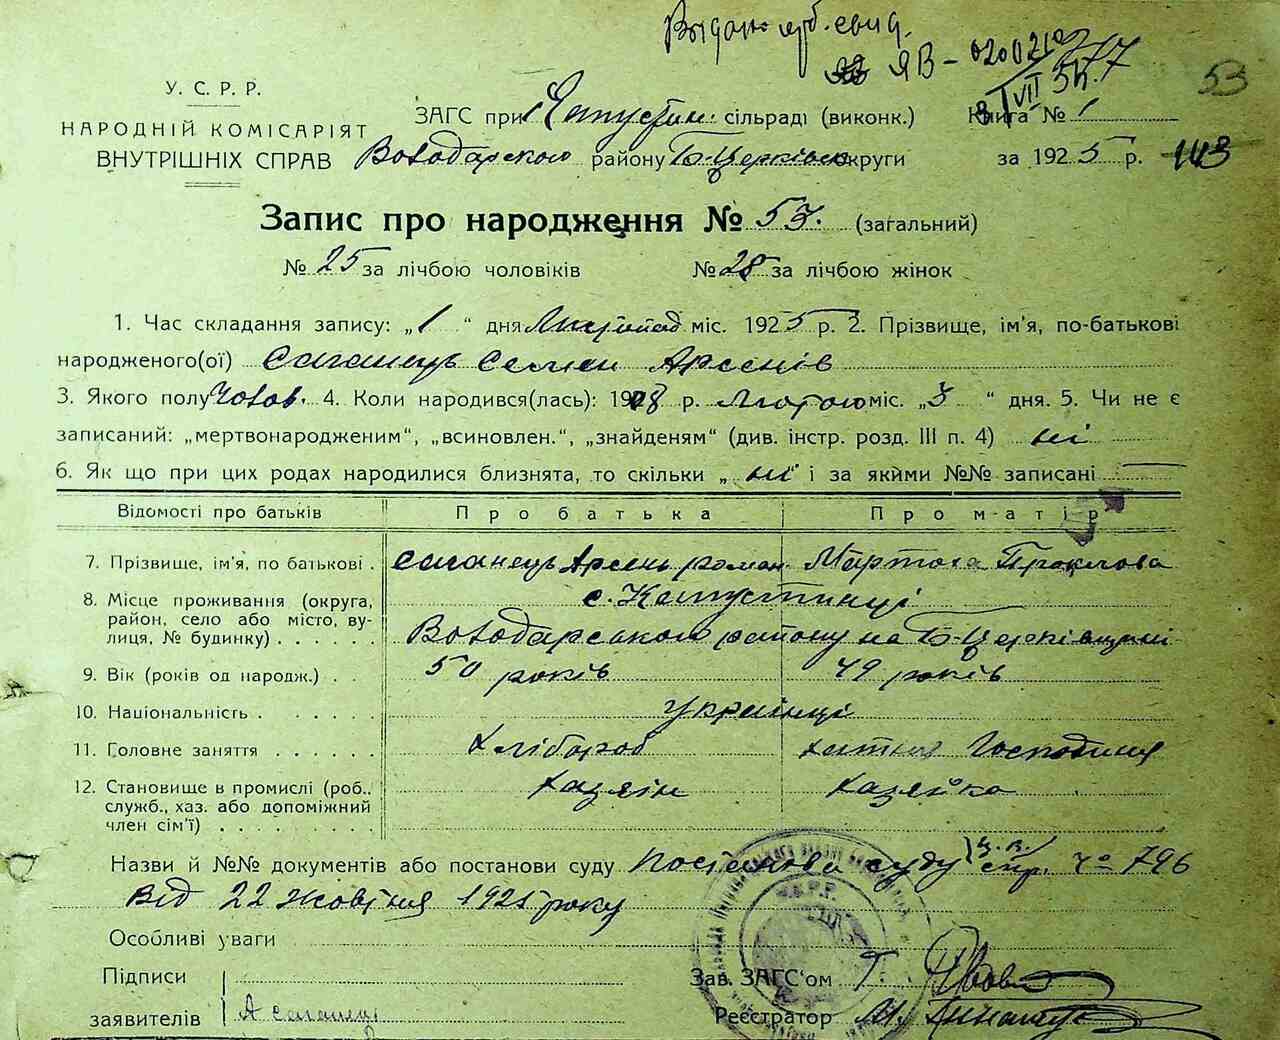 Видано
ЯВ - 020021
53
У. С. Р. Р.
НАРОДНІЙ КОМІСАРІЯТ
ВНУТРІШНІХ СПРАВ
ЗАГС при сільраді (виконк.) Книга № 1
Володарского району Б-Церківск округи за 1925 р. 143
Запис про народження № 53. (загальний)
№ 25 за лічбою чоловіків № 28 за лічбою жінок
1. Час складання запису: „1“ дня Листопад міс. 1925 р. 2. Прізвище, ім'я, по-батькові
народженого(ої) Саганець Семен Арсенів
3. Якого полу Чолов. 4. Коли народився(лась): 1908 р. Лютого міс. „3“ дня. 5. Чи не є
записаний: „мертвонародженим“, „всиновлен.“, „знайденям“ (див. інстр. розд. III п. 4) ні
6. Як що при цих родах народилися близнята, то скільки „ні“ і за якими №№ записані
Відомості про батьків Про батька Про матір
7. Прізвище, ім'я, по батькові . Саганець Арсень роман. Мартоха
8. Місце проживання (округа, с. Капустинці
район, село або місто, ву-
лиця, № будинку) . . . . . Володарського району на Б-Церківщині
9. Вік (років од народж.) . . 50 років 49 років
10. Національність . . . . . . українці
11. Головне заняття . . . . . . хлібороб хатня Господиня
12. Становище в промислі (роб., хазяін хазяйка
служб., хаз. або допоміжний
член сім'ї) . . . . . . . .
Назви й №№ документів або постанови суду Постанова суду стр. ч° 796
Від 22 жовтня 1925 року
Особливі уваги
Підписи Зав. ЗАГС'ом Г.
заявителів А Саганец Реєстратор М.